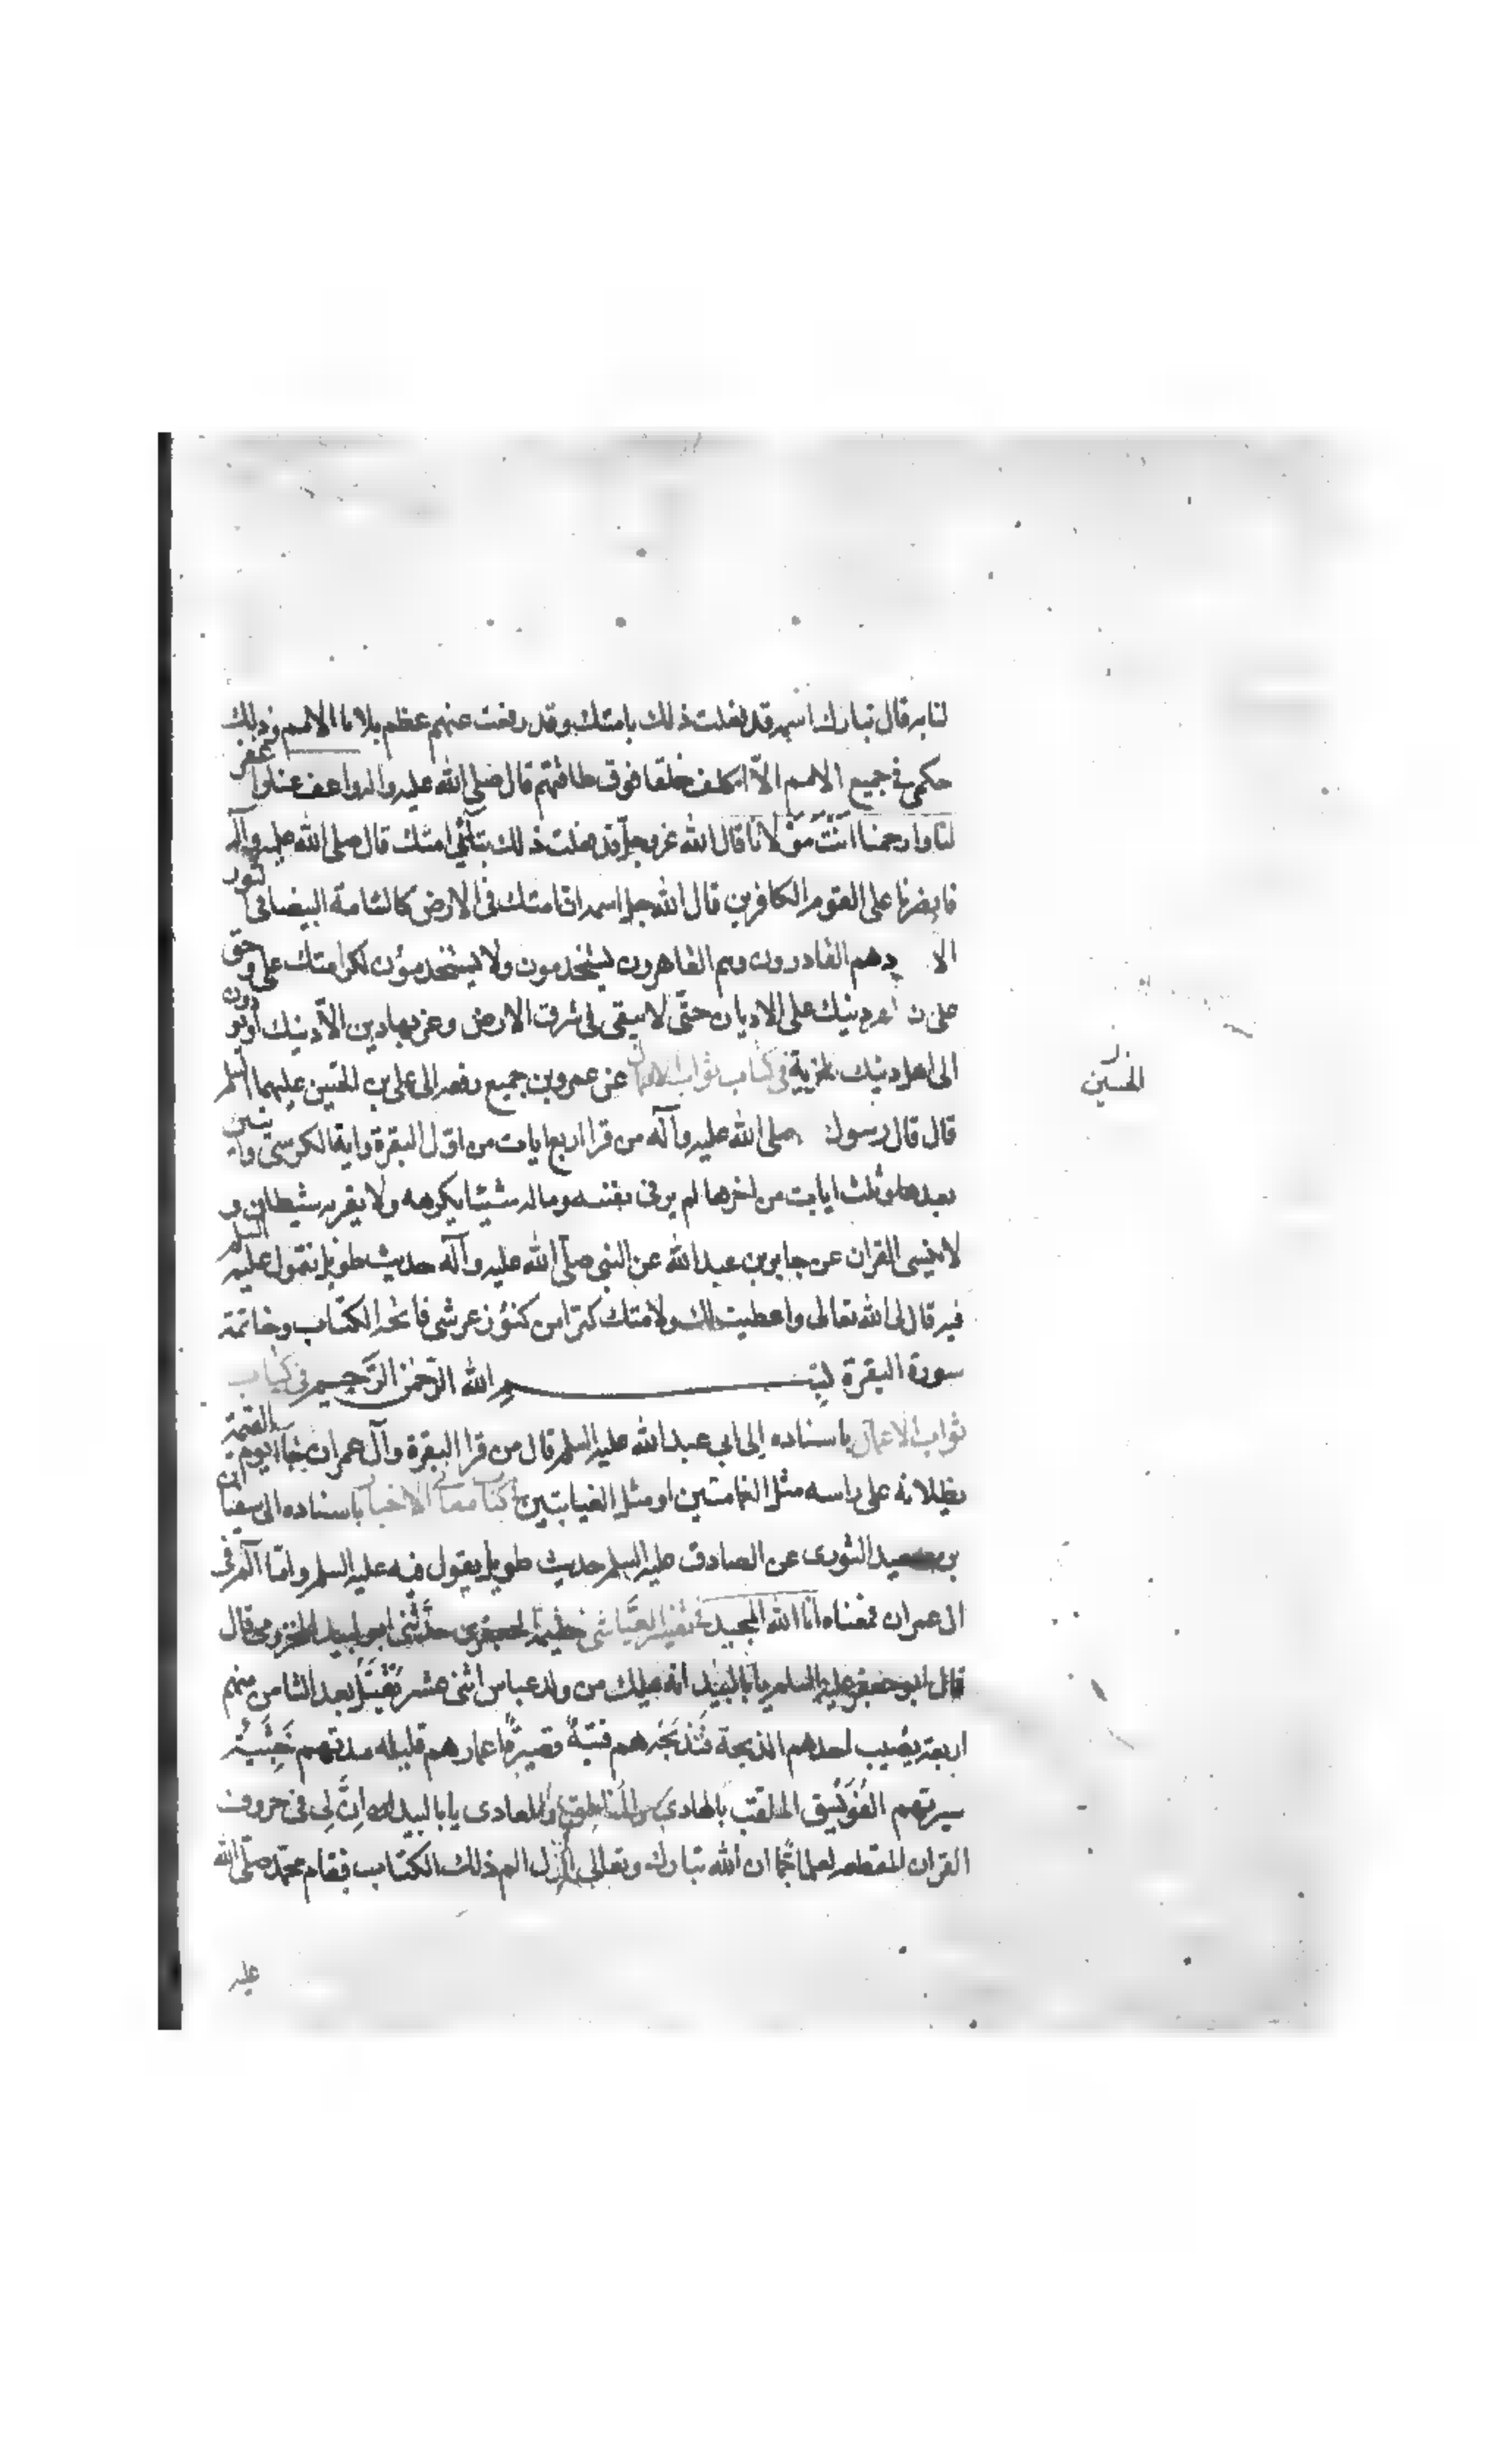 لنا به قال تبارك اسمه قد فعلت ذلك بامتك وقد رفعت عنهم عظم بلايا الامم وذلك
حكمي في جميع الامم الا اكلف خلقا فوق طاقتهم قال صلى الله عليه واله واعف عنا واغفر
لنا وارحمنا اَنْتَ مَوْلانا قال الله عز وجل قد فعلت ذلك بتائبي امتك قال صلى الله عليه وآله
فانصرنا على القوم الكافرين قال الله جل اسمه ان امتك في الارض كالشامة البيضا في الثور
الا د هم القادرون وهم القاهرون يستخدمون ولا يستخدمون لكرامتك علي وحق
علي ن دينك على الاديان حتّى لا يبقى في شرق الارض وغربها دين الّا دينك او يؤدون
الى اهل دينك الجزية في كتاب ثواب الاعمال عن عمرو بن جميع رفعه الى علي بن الحسين عليهما السلم
قال قال رسول صلى الله عليه وآله من قرا اربع ايات من اول البقرة واية الكرسى وايتين
بعدها وثلث ايات من اخرها لم ير في نفسه وماله شيئا يكرهه ولا يقربه شيطان و
لا ينسى القران عن جابر بن عبد الله عن النبي صلّى الله عليه وآله حديث طويل يقول عليه السلم
فيه قال لى الله تعالى واعطيت لك ولامتك كنزا من كنوز عرشى فاتحة الكتاب وخاتمة
سورة البقرة بسم الله الرّحمن الرَّحيم في كتاب
ثواب الاعمال باسناده الى ابي عبد الله عليه السلم قال من قرا البقرة وآل عمران جاءا يوم القيمة
يظلانه على راسه مثل الغمامتين او مثل الغيابتين في كتاب معاني الاخبار باسناده الى سفيان
بن سعيد الثورى عن الصادق عليه السلم حديث طويل يقول فيه عليه السلم وامّا آلم في
ال عمران فمعناه انا الله المجيد في تفسير العيّاشى خيثمة الجعفرى حدّثنى ابو لبيد المخزومى قال
قال ابو جعفر عليه السلم يا با لبيد انه يملك من ولد عباس اثنى عشر يُقْتَلُ بعد الثامن منهم
اربعة يصيب احدهم الذبحة فتذبحه هم فتية قصيرة اعمارهم قليله مدتهم خبيثة
سيرتهم الفويسق الملقب بالهادي والناطق والعادى يا با لبيد ان لى في حروف
القران المقطعه لعلما جمّا ان الله تبارك وتعالى انزل الم ذلك الكتاب فقام محمّد صلّى الله
عليه
الحسين